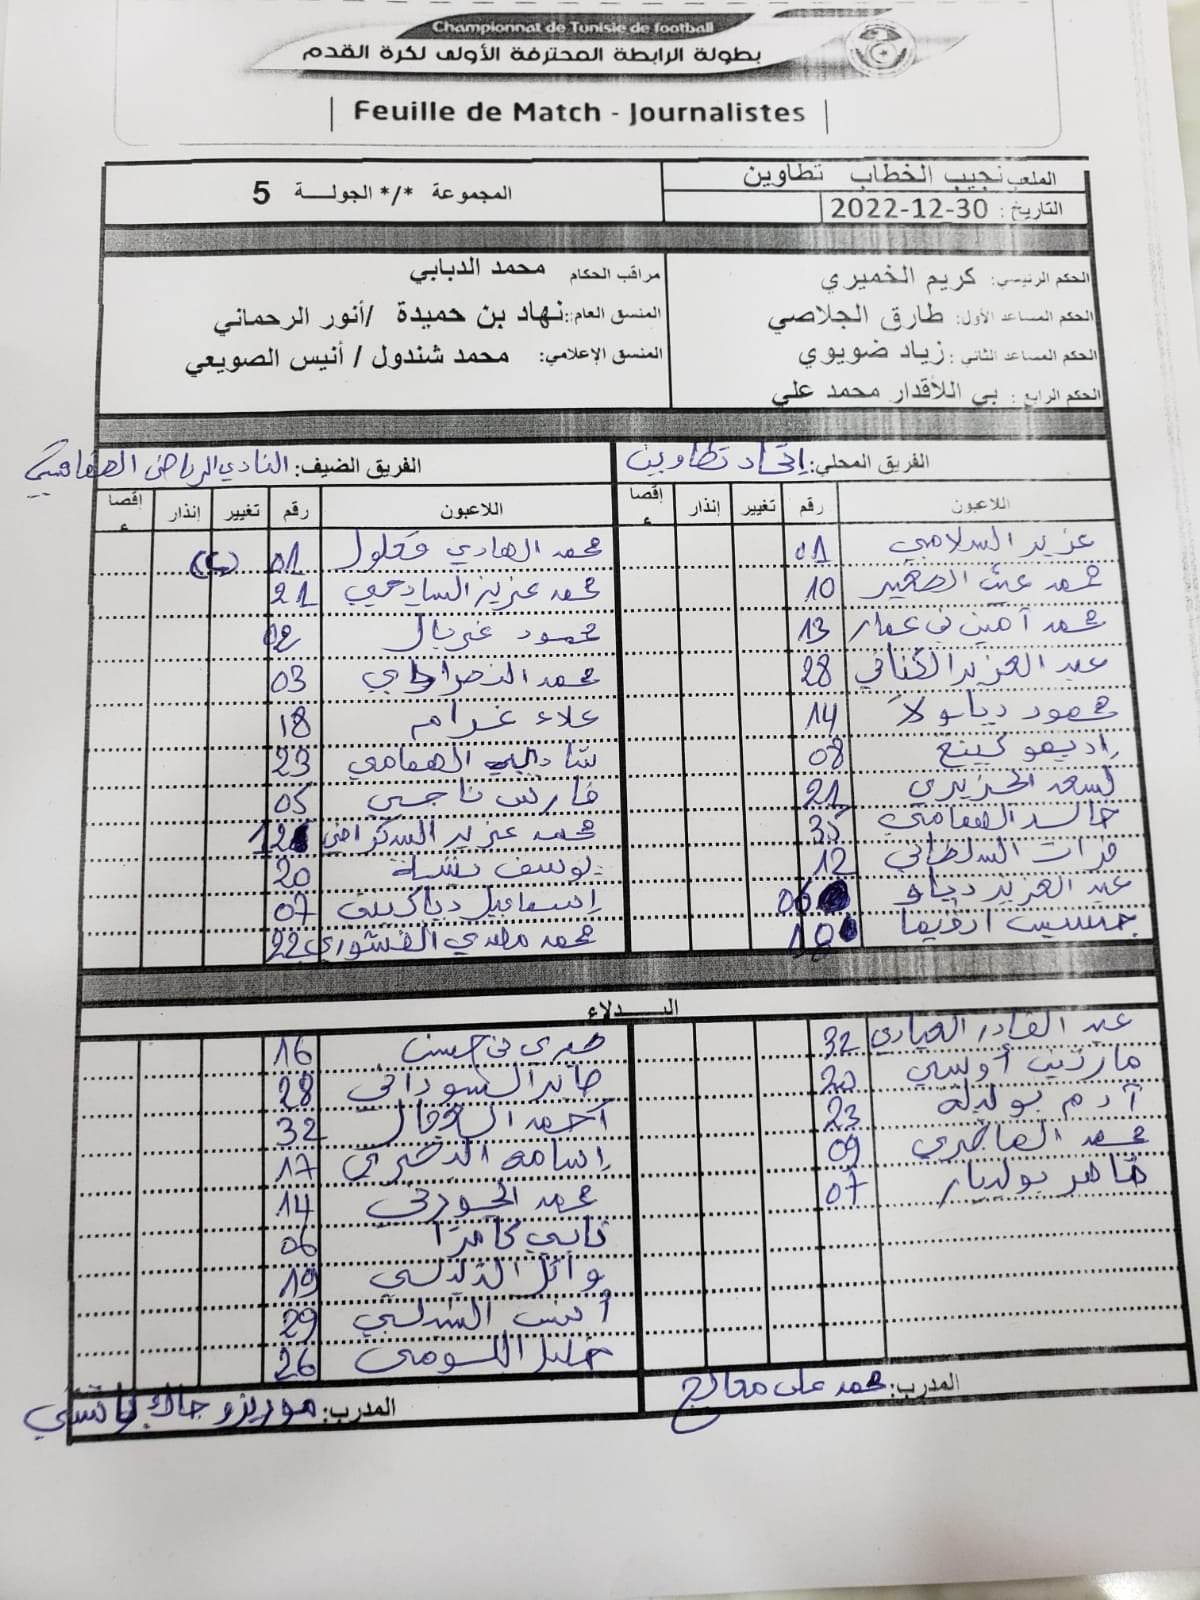 Championnat de Tunisie de football
بطولة الرابطة المحترفة الأولى لكرة القدم
Feuille de Match - Journalistes
الملعب نجيب الخطاب تطاوين
المجموعة */* الجولة 5
التاريخ: 30-12-2022
الحكم الرئيسي: كريم الخميري
مراقب الحكام محمد الدبابي
الحكم المساعد الأول: طارق الجلاصي
المنسق العام: نهاد بن حميدة /أنور الرحماني
الحكم المساعد الثاني: زياد ضويوي
المنسق الإعلامي: محمد شندول / أنيس الصويعي
الحكم الرابع: بي اللأقدار محمد علي
الفريق المحلي: إتحاد تطاوين
الفريق الضيف: النادي الرياضي الصفاقسي
اللاعبون رقم تغيير إنذار إقصاء
اللاعبون رقم تغيير إنذار إقصاء
عزيز السلامي 01
محمد الهادي قعلول 01 (C)
محمد عث الصغير 10
محمد عزيز السايحي 21
محمد أمين بن عمار 13
محمود غربال 02
عبد العزيز الكناني 28
محمد النصراوي 03
محمود ديابولا 14
علاء غرام 18
إديمو كينغ 08
شادي الهمامي 23
لسعد الجزيري 21
فارس ناجي 05
خالد الهمامي 35
محمد عزيز السكراني 12
فرات السلطاني 12
يوسف بشة 20
عبد العزيز دياو 06
إسماعيل دياكيتي 07
18
محمد مهدي القشوري 22
البــدلاء
عبد القادر العيادي 32
صبري بن حسن 16
مارتين أوسي 20
صابر السوداني 28
آدم بوليلة 23
أحمد 32
محمد 09
إسامة 17
طاهر بولبيار 07
محمد 14
نابي كامرا 06
وائل الذيلسي 19
أنس 29
خليل اللومي 26
المدرب: محمد علي معالج
المدرب: موريزو جاكوباتشي